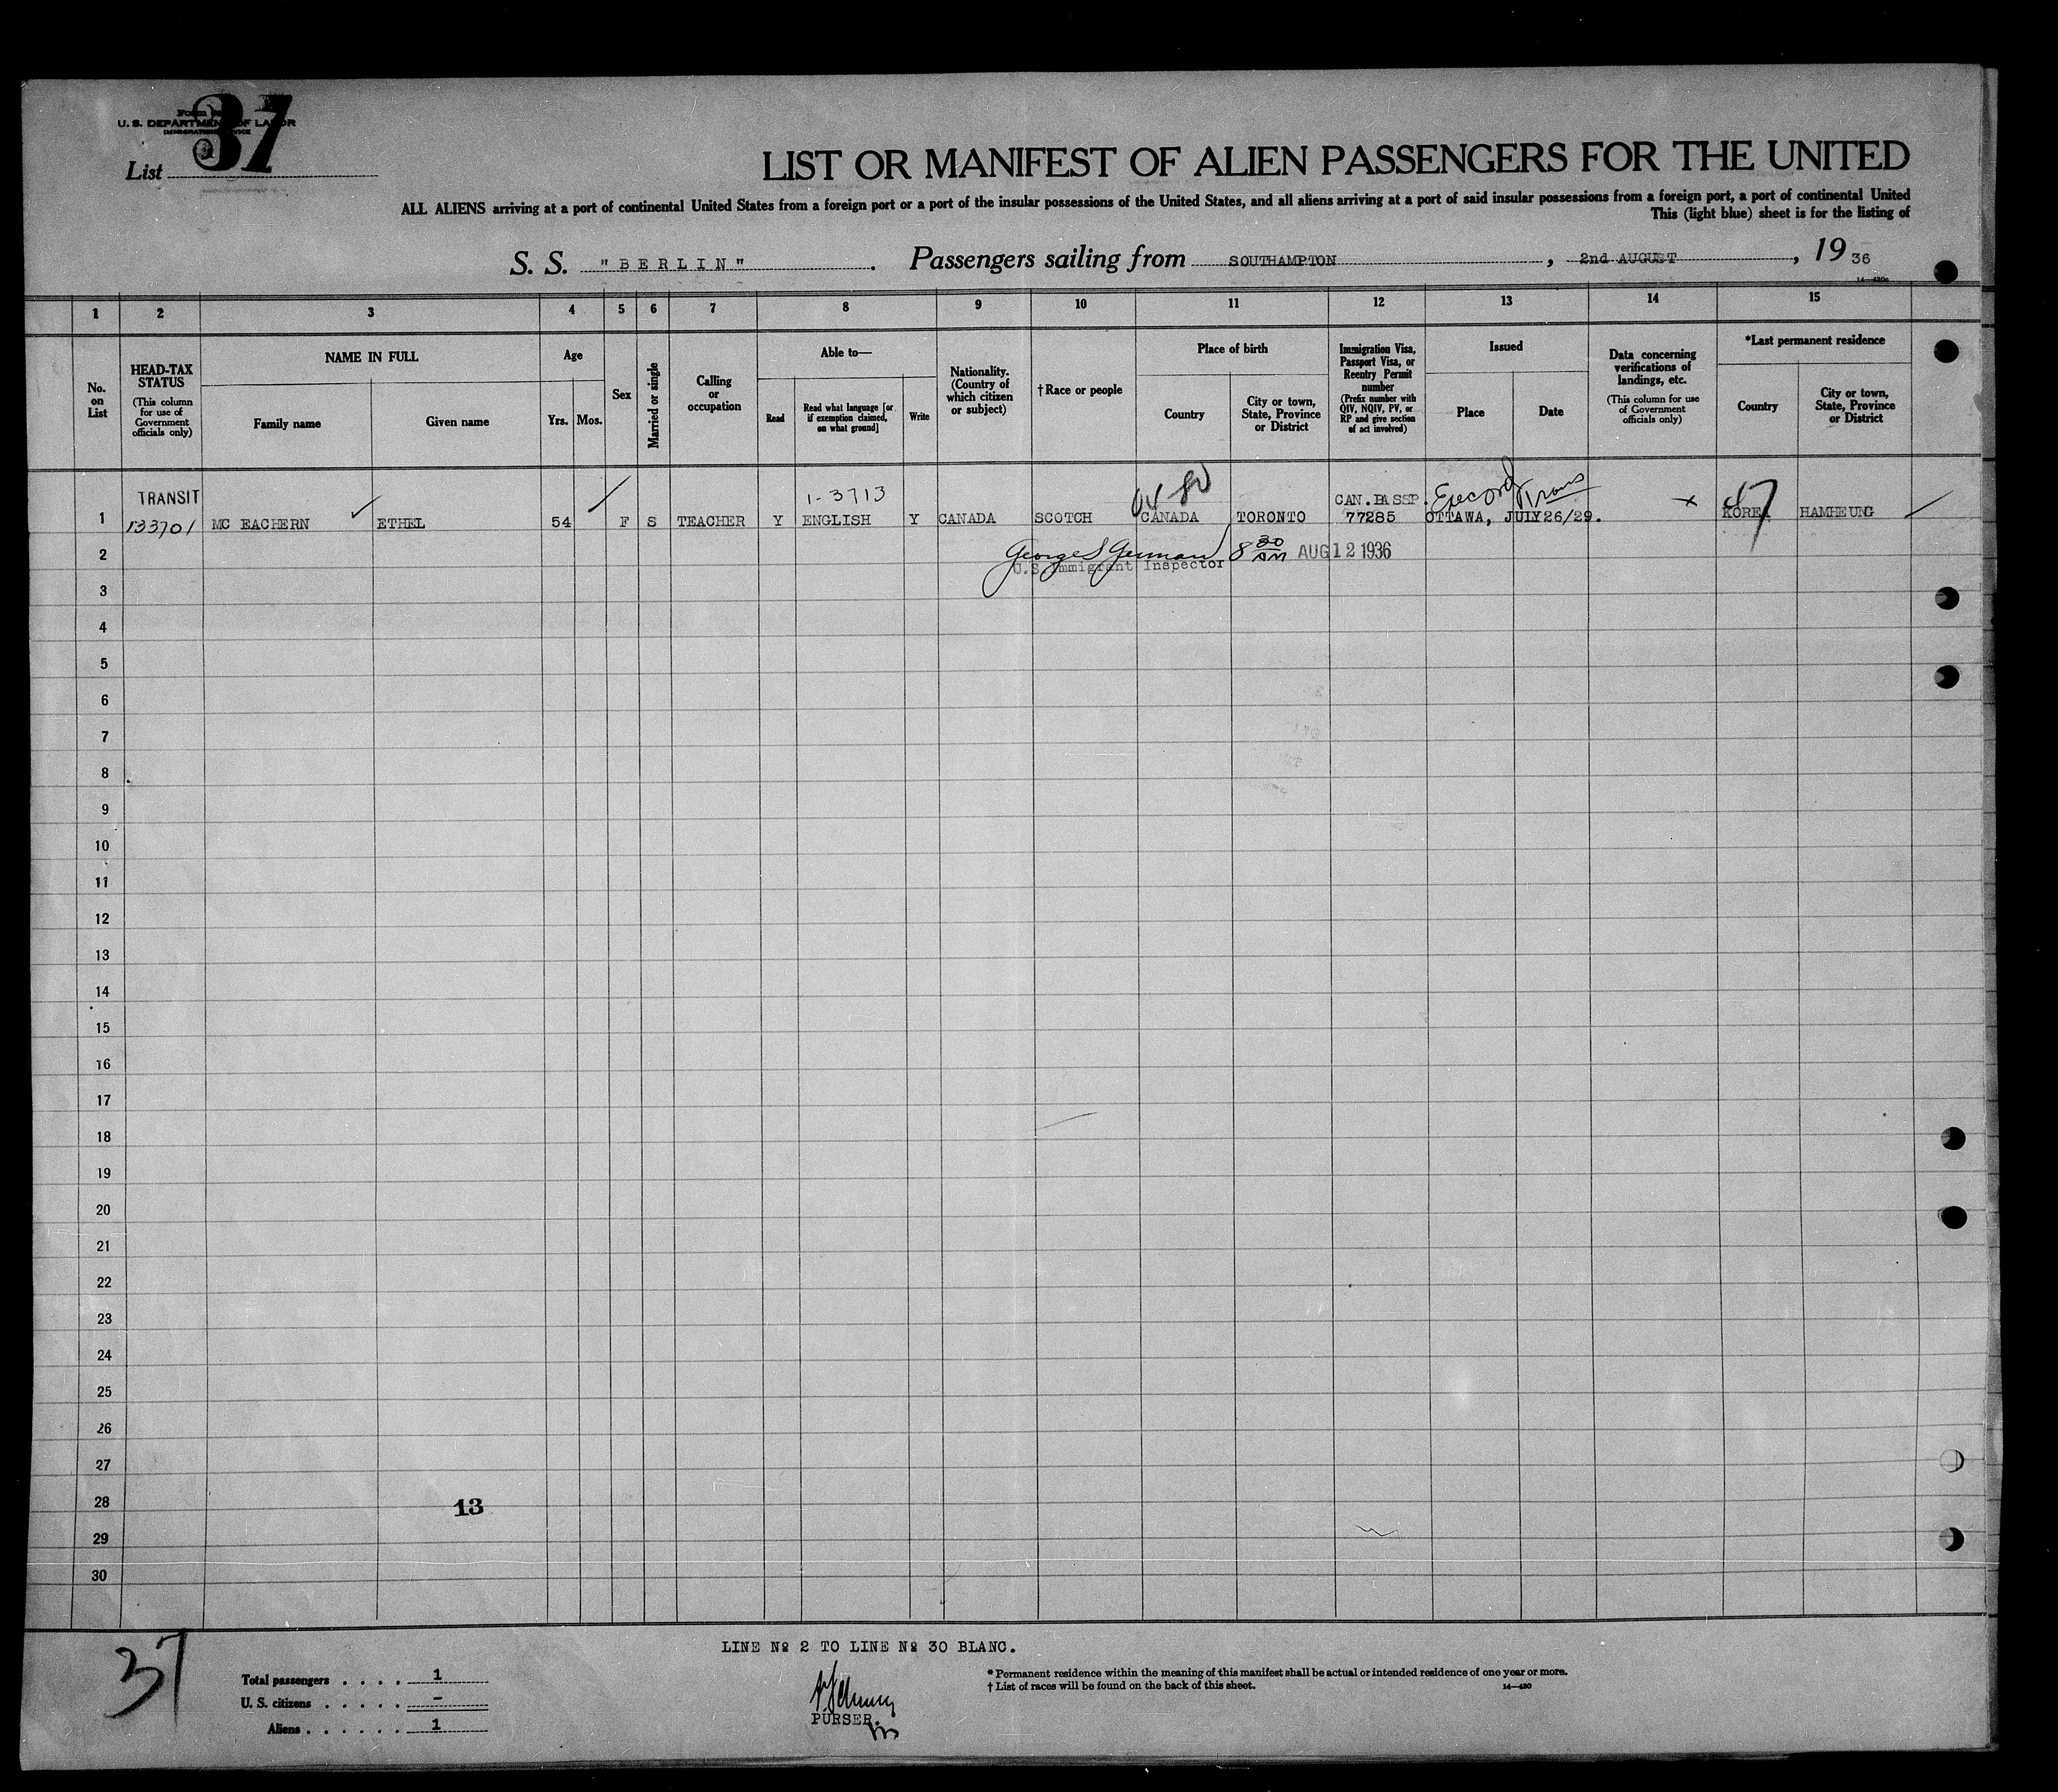 37
U. S. DEPARTMENT OF LABOR
IMMIGRATION SERVICE
List 37
LIST OR MANIFEST OF ALIEN PASSENGERS FOR THE UNITED
ALL ALIENS arriving at a port of continental United States from a foreign port or a port of the insular possessions of the United States, and all aliens arriving at a port of said insular possessions from a foreign port, a port of continental United
This (light blue) sheet is for the listing of
S. S. "BERLIN". Passengers sailing from SOUTHAMPTON, 2nd AUGUST, 1936
1 2 3 4 5 6 7 8 9 10 11 12 13 14 15
No. on List
HEAD-TAX STATUS (This column for use of Government officials only)
NAME IN FULL
Family name
Given name
Age
Yrs. Mos.
Sex
Married or single
Calling or occupation
Able to—
Read
Read what language [or if exemption claimed, on what ground]
Write
Nationality. (Country of which citizen or subject)
†Race or people
Place of birth
Country
City or town, State, Province or District
Immigration Visa, Passport Visa, or Reentry Permit number (Prefix number with QIV, NQIV, PV, or RP and give section of act involved)
Issued
Place
Date
Data concerning verifications of landings, etc. (This column for use of Government officials only)
*Last permanent residence
Country
City or town, State, Province or District
TRANSIT 1-3713 CAN.PASSP.
1 133701 MC EACHERN ETHEL 54 F S TEACHER Y ENGLISH Y CANADA SCOTCH CANADA TORONTO 77285 OTTAWA, JULY26/29. x KOREA HAMHEUNG
2 George S German 8 30 AM AUG 12 1936
U.S. Immigrant Inspector
3
4
5
6
7
8
9
10
11
12
13
14
15
16
17
18
19
20
21
22
23
24
25
26
27
28 13
29
30
LINE № 2 TO LINE № 30 BLANC.
37
Total passengers . . . . 1
U. S. citizens . . . . . –
Aliens . . . . . . 1
PURSER.
* Permanent residence within the meaning of this manifest shall be actual or intended residence of one year or more.
† List of races will be found on the back of this sheet.
14—430